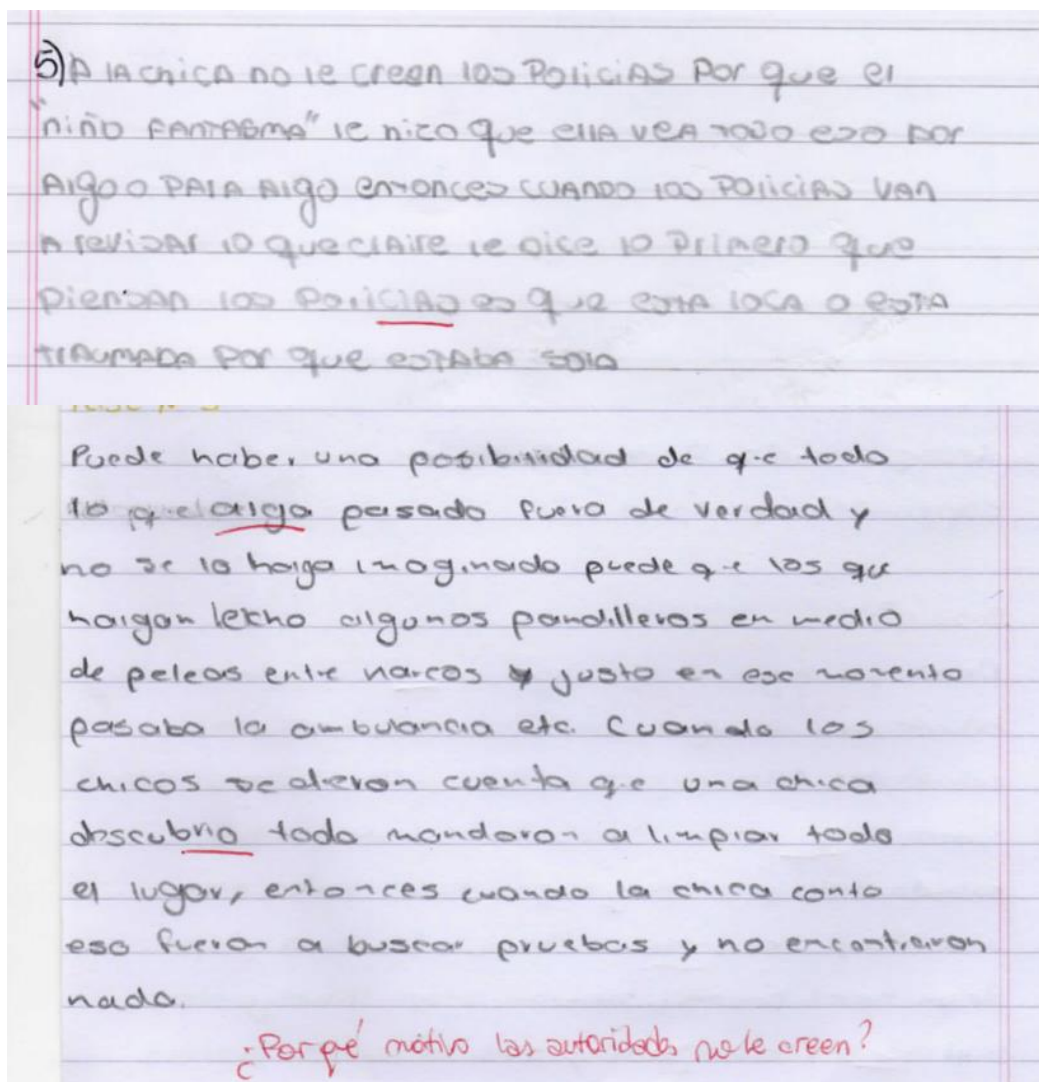 5) A la chica no le creen los Policias Por que el
"niño FANTASMA" le hizo que ella vea todo eso por
Algo o PARA Algo entonces cuando los Policias van
A revisar lo que claire le dice lo primero que
piensan los Policias es que esta loca o esta
traumada por que estaba sola
Puede haber una posibilidad de que todo
lo que aiga pasado fuera de verdad y
no se lo haiga imaginado puede que los que
haigan lecho algunos pandilleros en medio
de peleas entre narcos y justo en ese momento
pasaba la ambulancia etc. Cuando los
chicos se dieron cuenta que una chica
descubrio todo mandaron a limpiar todo
el lugar, entonces cuando la chica conto
eso fueron a buscar pruebas y no encontraron
nada.
¿Por qué motivo las autoridades no le creen?